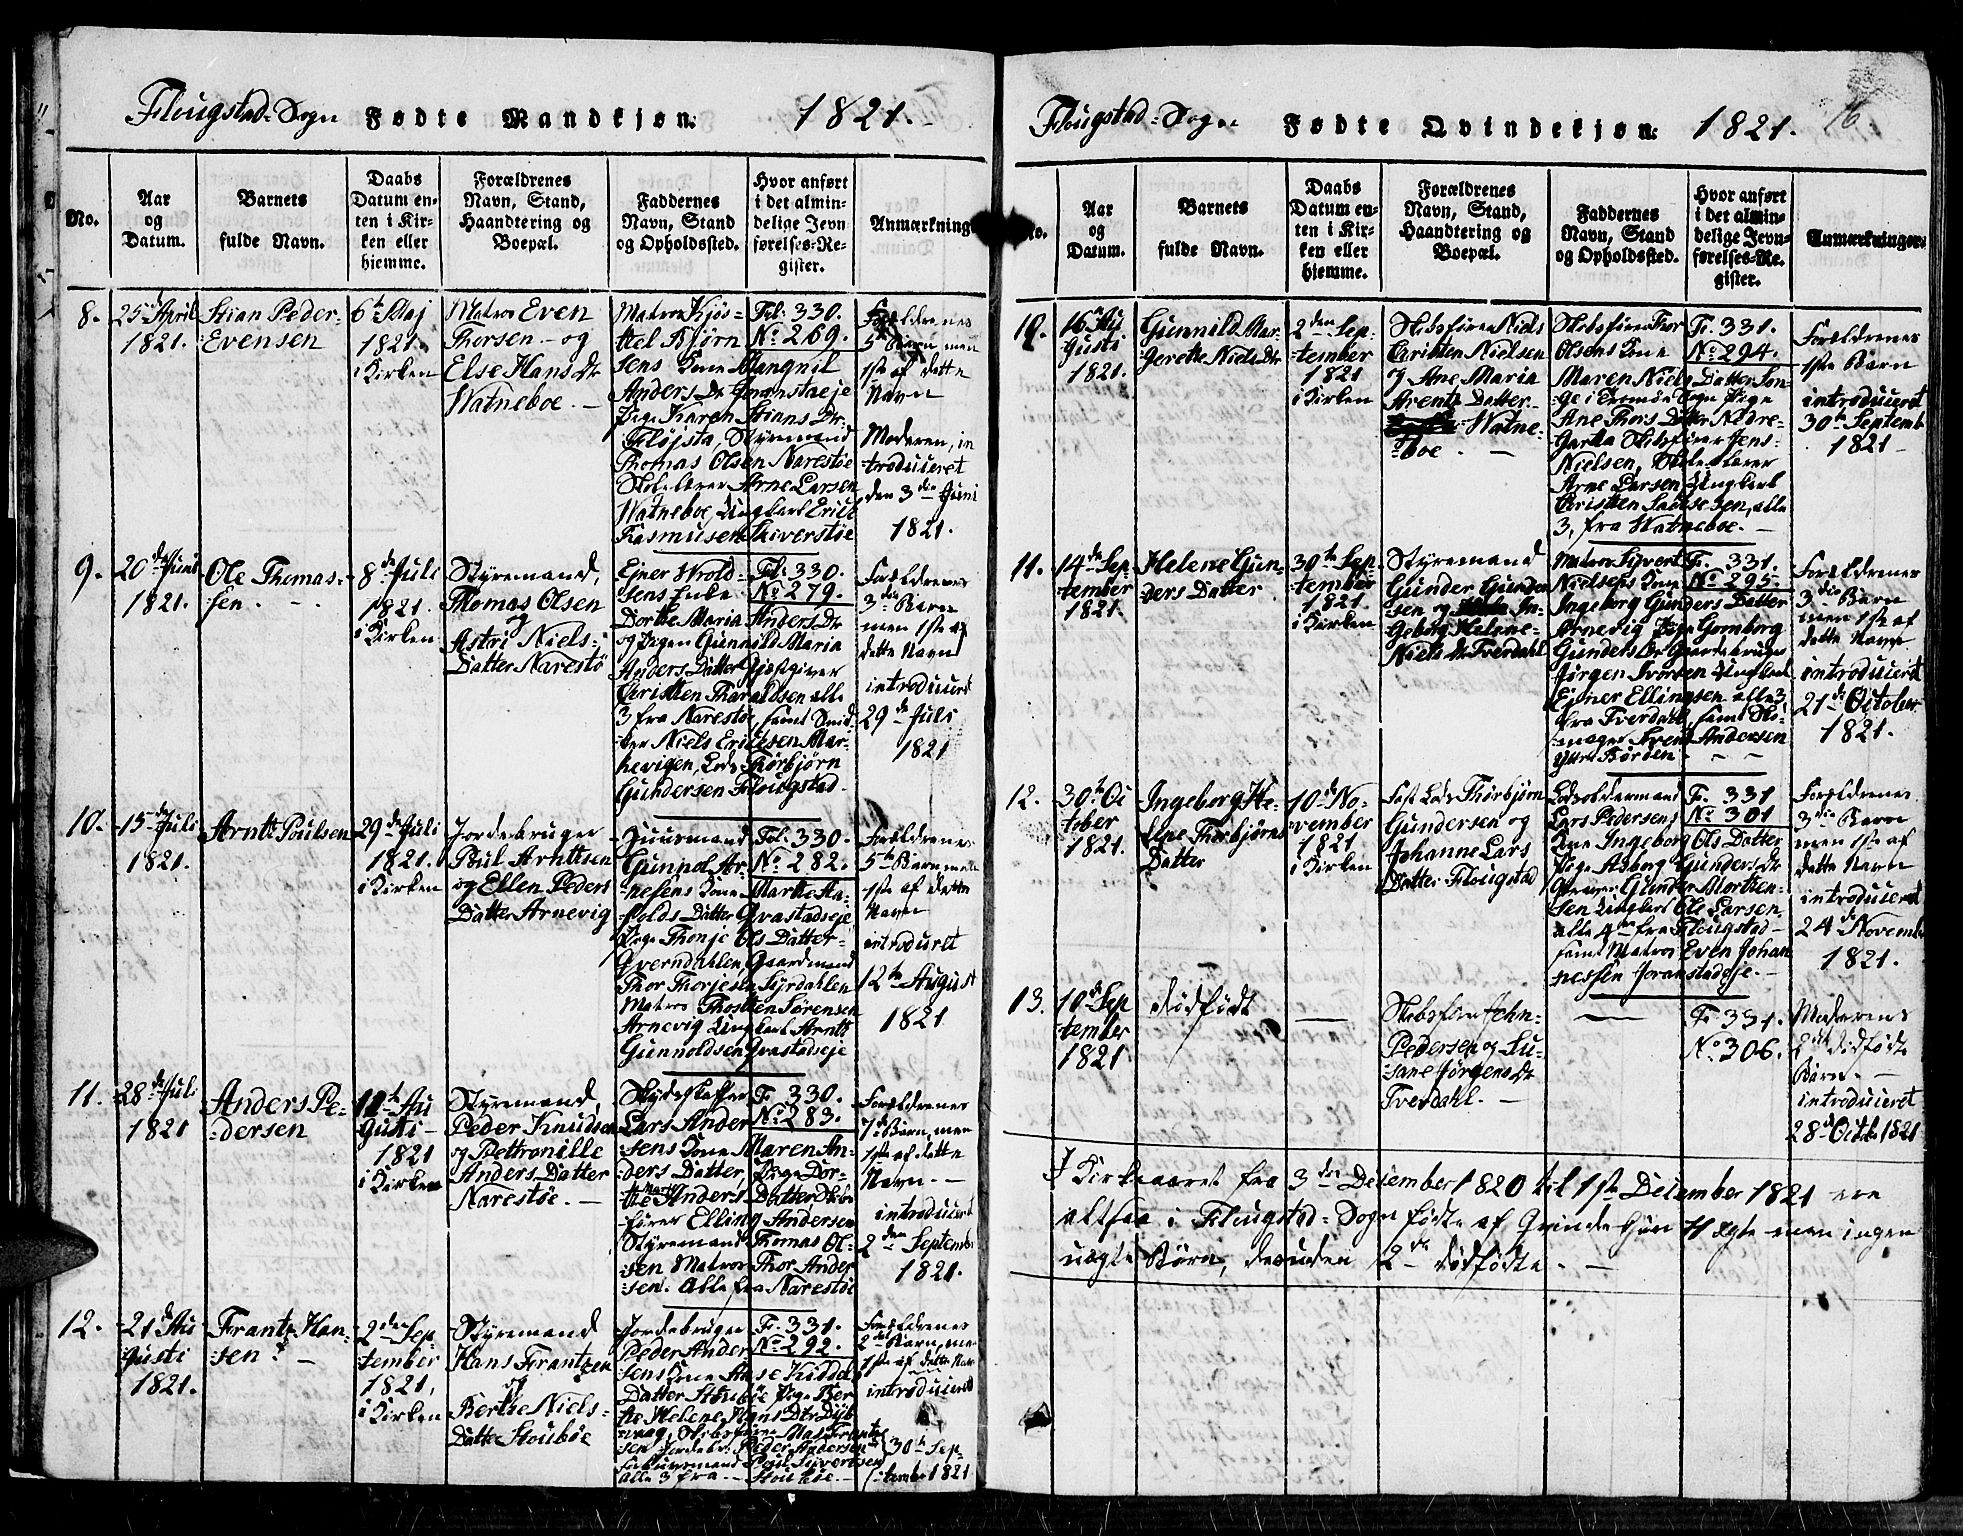 Flougstad-Sogn Fødte Mandkjøn. 1821.
No.
Aar
og
Datum.
Barnets
fulde Navn.
Daabs
Datum en-
ten i Kir-
ken eller
hjemme.
Forældrenes
Navn, Stand,
Haandtering og
Boepæl.
Faddernes
Navn, Stand
og Opholdssted.
Hvor anført
i det almin-
delige Jevn
førelses-Re-
gister.
Anmærkning
8.
25de April
1821.
Stian Peder-
Evensen
6te Maj
1821.
i Kirken
Matros Even
Thorsen og
Else Hans Dr
Watneboe.
Matros Kjøs-
tel Bjørn
sens Kone Mangnil
Anders Dr Goranstaeje
Pige Karen Stians Dr
Fløjsta, Styremand
Thomas Olsen Narestøe
Skolelærer Arne Larsen
Watneboe, Ungkarl Erich
Rasmusen Siverstøe
Fol: 330.
No 269.
Forældrenes
5te Barn men
1ste af dette
Navn
Moderen in
troduceret
den 3die Juni
1821.
9.
20de Juni
1821.
Ole Thomas-
sen.
8de Juli
1821.
i Kirken
Styremand,
Thomas Olsen
og
Astri Niels-
Datter Narestø
Ejner Wrold-
sens Enke
Dorthe Maria Anders Dr
og Pigen Gunnild Maria
Anders Datter Gjestgiver
Christen Tharaldsen alle
3 fra Narestøe, samt Smid-
ker Niels Ericksen Mar-
kevigen, Lods Thorbjørn
Gundersen Flougstad.
Fol: 330.
No 279.
Forældrenes
3die Barn
men 1ste af
dette Navn
introduceret
29de Juli
1821
10.
15de Juli
1821.
Arnt Poulsen
29de Juli
1821.
i Kirken
Jordebruger
Poul Arntsen
og Ellen Peders
Datter Arnevig
Huusmand
Gunnol Ar-
nesens Kone Marthe Aa-
solds Datter Qvastadseje
Pige Thonje Ols Datter
Qverndahlen, Gaardmand
Thor Thorjesen Syrdahlen
Matros Thosten Sørensen
Arnevig Ungkarl Arnt
Gunnoldsen Qvastadseje
Fol: 330.
No 282.
Forældrenes
5te Barn men
1ste af dette
Navn
introduceret
12te August
1821
11.
28de Juli
1821
Anders Pe-
dersen
12te Au
gusti
1821
i Kirken
Styremand
Peder Knudsen
og Pettronille
Anders Datter
Narestøe.
Skydeskaffer
Lars Ander
sens Kone Maren An-
ders Datter, Pige Dor-
the Marie Anders Datter Skibs
fører Elling Andersen
Styremand Thomas Ol-
sen Matros Thor Ander
sen. Alle fra Narestøe
F: 330.
No 283.
Forældrenes
7de Barn, men
1ste af dette
Navn.
introduceret
2den Septemb
1821.
12.
21de Au
gusti
1821.
Frantz Han-
sen.
2den Sep
tember
1821,
i Kirken
Styremand
Hans Frantzen
og
Berthe Niels-
Datter Stoubøe
Jordebruger
Peder Ander
sens Kone Anse Kidda
Datter Stoubøe Pige Ber
the Helene Hans Dtr Dyb
waag, Skibsfører Mas Frantz
sen Jordebr: Peder Andersen
Poul Sivertsen
alle 3 fra Stoubøe
F: 331.
No 292.
Forældrenes
2det Barn, men
1ste af dette Nav
introduceret
30te Sep
tember 1821
Flougstad-Sogn Fødte Qvindekjøn 1821. 16
No.
Aar
og
Datum.
Barnets
fulde Navn.
Daabs
Datum en-
ten i Kir-
ken eller
hjemme.
Forældrenes
Navn, Stand,
Haandtering og
Boepæl.
Faddernes
Navn, Stand
og Opholdssted.
Hvor anført
i det almin-
delige Jevn-
førelses-Re-
gister.
Anmærkninger.
10.
16de Au
gusti
1821.
Gunnild Mar-
gerethe Niels Dtr
2den Sep-
tember
1821
i Kirken
Skibsfører Niels
Christen Nielsen
og Ane Maria
Arentz Datter
Watne-
boe.
Skibsfører Thor
Olsens Kone
Maren Niels Datter Son-
ge i Tromøe Sogn Pige
Ane Thors Datter Nedre-
Garta Skibsfører Jens
Nielsen, Skolelærer
Arne Larsen Ungkarl
Christen sen, alle
3, fra Watneboe.
F: 331.
No 294.
Forældrenes
1ste Barn
introduceret
30te Septemb
1821
11.
14de Sep-
tember
1821.
Helene Gun-
ders Datter
30te Sep-
tember
1821.
i Kirken
Styremand
Gunder Gunder
sen og In-
geborg Helene
Niels Dr Tverdahl
Matros Sivert
Nielsens Kone
Ingeborg Gunders Datter
Arnevig Pige Gomborg
Gunders Dr Gaardebruger
Jørgen Ivorsen Ungkarl
Ejner Ellingsen alle 3
fra Tverdahl, samt Sko-
mager Svend Andersen
Yttre Børden
F: 331.
No 295.
Forældrenes
3die Barn
men 1ste af
dette Navn
introduceret
21de October
1821.
12.
30te Oc
tober
1821.
Ingeborg He-
lene Thorbjørns
Datter
10de No-
vember
1821
i Kirken
Fast Lods Thorbjørn
Gundersen og
Johanne Lars
Datter Flougstad
Lodsoldermand
Lars Pedersens
Kone Ingeborg Ols Datter
Pige Asborg Gunders Dr
Gunder Morthen-
sen Ungkarl Ole Larsen
alle 4re fra Flougstad
samt Matros Even Johan
nessen Joranstadeje.
F: 331
No 301
Forældrenes
3die Barn
men 1ste af
dette Navn
introduceret
24de Novemb
1821.
13.
10de Sep
tember
1821
dødfødt
Skibsfører John
Pedersen og Su-
sane Jørgens Dr
Tverdahl.
F: 331.
No 306.
Moderens
2det dødfødte
Barn.
introduceret
28de Octbr 1821
I Kirkeaaret fra 3die December 1820 til 1ste December 1821 ere
altsaa i Flougstad-Sogn fødte af Qvinde Kjøn 11 ægte men ingen
uægte Børn, desuden 2de dødfødte.